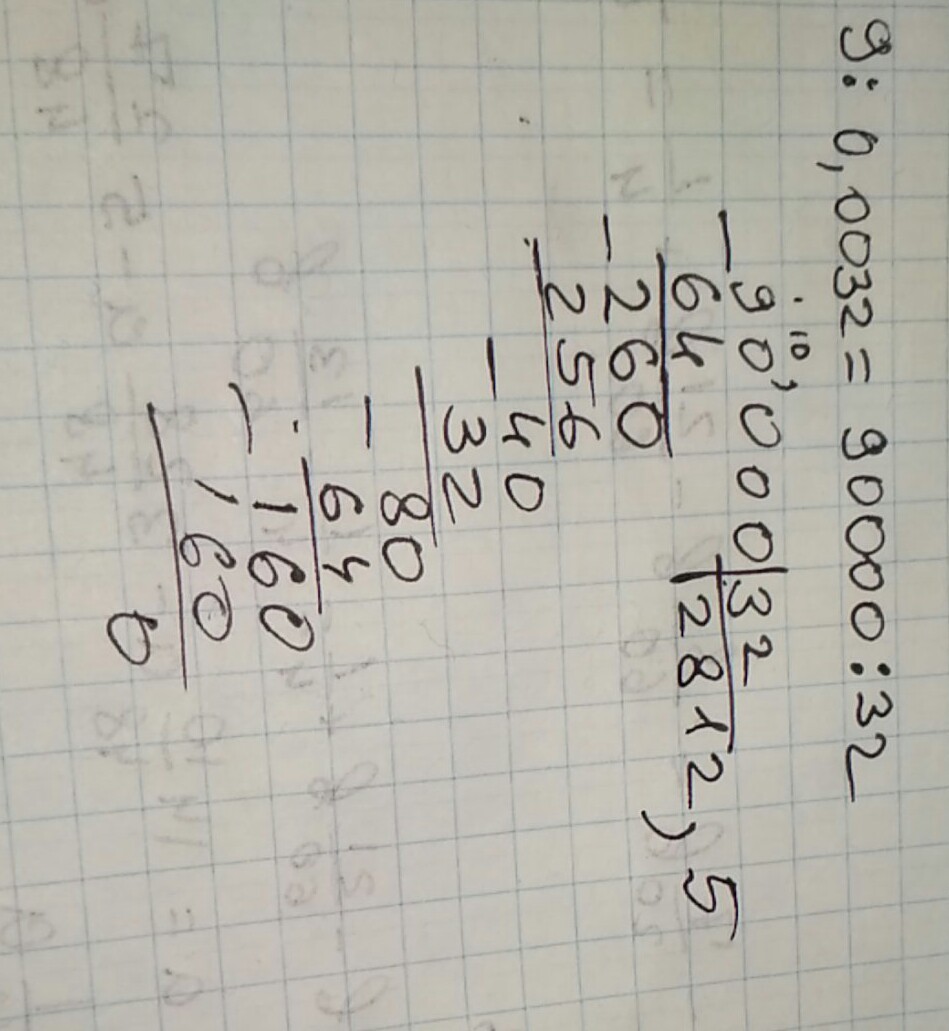 9 : 0,0032 = 90000 : 32
. 10
− 90,000 | 32
64 | 2812,5
− 260
256
− 40
32
− 80
64
− 160
160
0